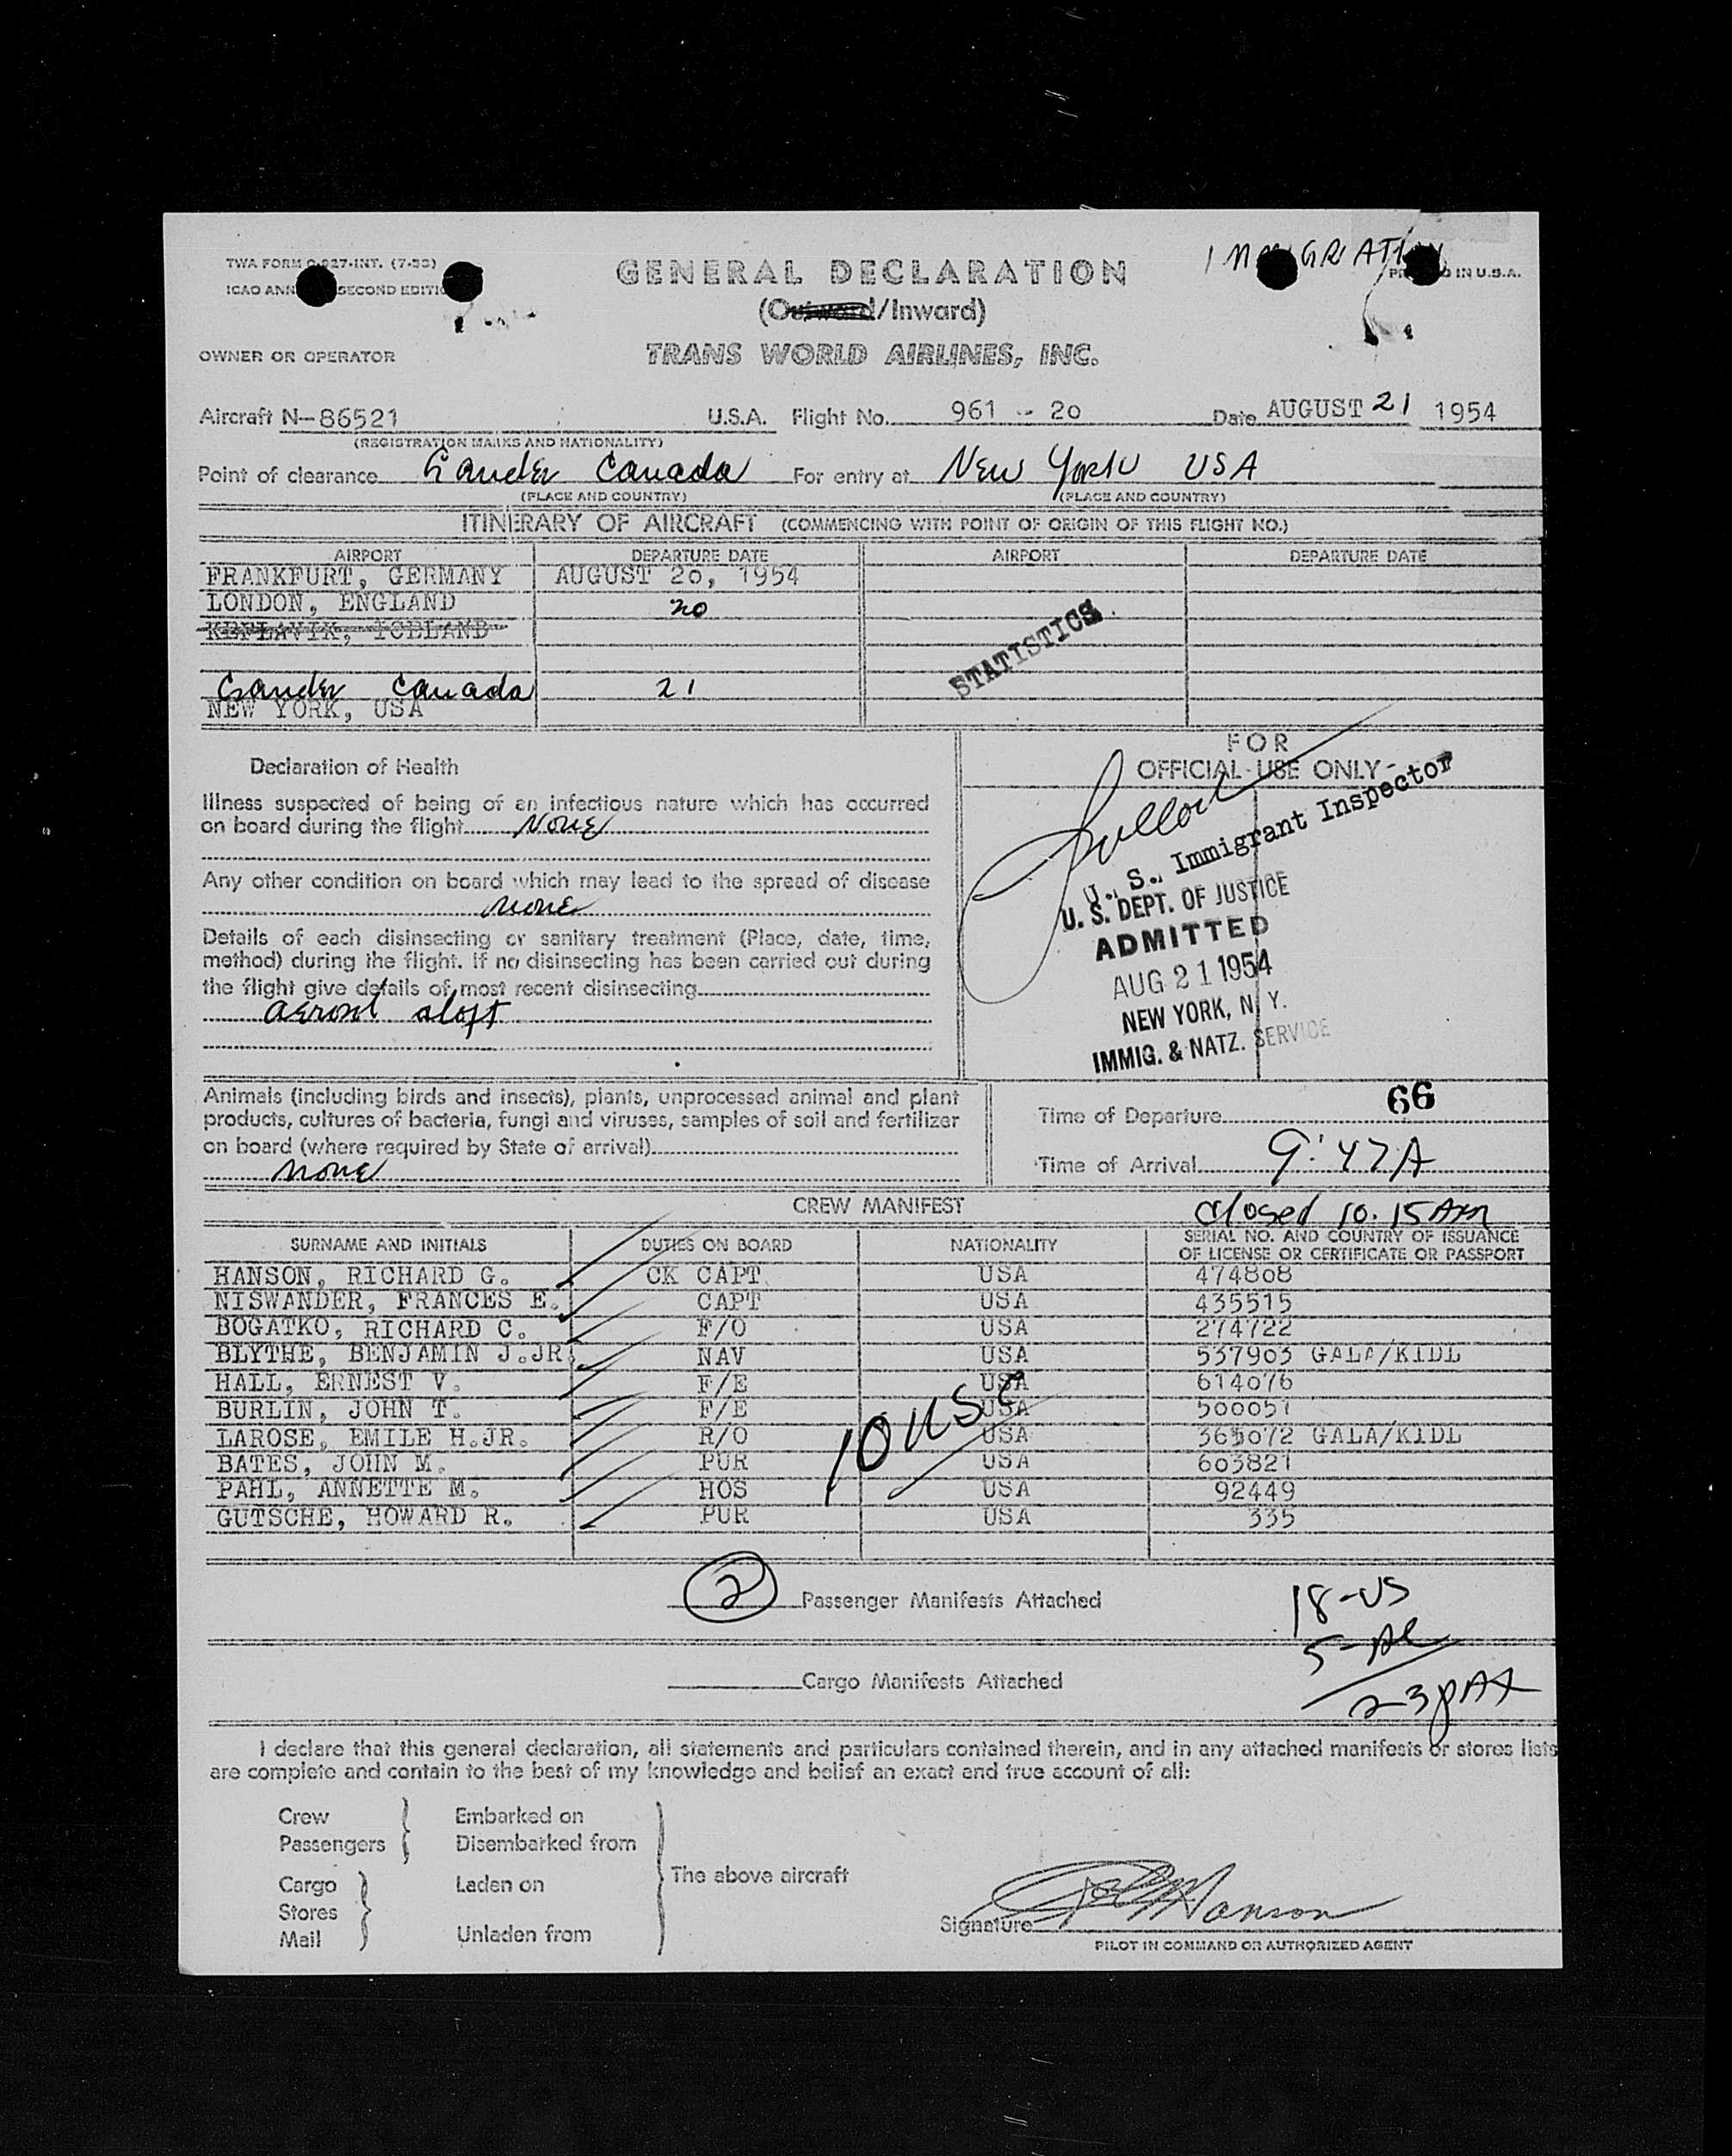 IMMIGRATION
TWA FORM 0-927-INT. (7-53)
PRINTED IN U.S.A.
ICAO ANNEX SECOND EDITION
GENERAL DECLARATION
(Outward/Inward)
OWNER OR OPERATOR TRANS WORLD AIRLINES, INC.
Aircraft N-86521 U.S.A. Flight No. 961 - 20 Date AUGUST 21 1954
(REGISTRATION MARKS AND NATIONALITY)
Point of clearance Gander Canada For entry at New York USA
(PLACE AND COUNTRY) (PLACE AND COUNTRY)
ITINERARY OF AIRCRAFT (COMMENCING WITH POINT OF ORIGIN OF THIS FLIGHT NO.)
AIRPORT DEPARTURE DATE AIRPORT DEPARTURE DATE
FRANKFURT, GERMANY AUGUST 20, 1954
LONDON, ENGLAND 20
KEFLAVIK, ICELAND
STATISTICS
Gander Canada 21
NEW YORK, USA
Declaration of Health
Illness suspected of being of an infectious nature which has occurred
on board during the flight None
Any other condition on board which may lead to the spread of disease
none
Details of each disinsecting or sanitary treatment (Place, date, time,
method) during the flight. If no disinsecting has been carried out during
the flight give details of most recent disinsecting
aerosol aloft
FOR
OFFICIAL USE ONLY
U. S. Immigrant Inspector
U. S. DEPT. OF JUSTICE
ADMITTED
AUG 21 1954
NEW YORK, N. Y.
IMMIG. & NATZ. SERVICE
Animals (including birds and insects), plants, unprocessed animal and plant
products, cultures of bacteria, fungi and viruses, samples of soil and fertilizer
on board (where required by State of arrival)
none
66
Time of Departure
Time of Arrival 9:47A
CREW MANIFEST
Closed 10.15 AM
SURNAME AND INITIALS DUTIES ON BOARD NATIONALITY SERIAL NO. AND COUNTRY OF ISSUANCE
OF LICENSE OR CERTIFICATE OR PASSPORT
HANSON, RICHARD G. CK CAPT USA 474808
NISWANDER, FRANCES E. CAPT USA 435515
BOGATKO, RICHARD C. F/O USA 274722
BLYTHE, BENJAMIN J.JR. NAV USA 537903 GALA/KIDL
HALL, ERNEST V. F/E USA 614076
BURLIN, JOHN T. F/E USA 500051
LAROSE, EMILE H.JR. R/O USA 365072 GALA/KIDL
BATES, JOHN M. PUR USA 603821
PAHL, ANNETTE M. HOS USA 92449
GUTSCHE, HOWARD R. PUR USA 335
10 USC
2 Passenger Manifests Attached
18-US
5-AL
23 PAX
Cargo Manifests Attached
I declare that this general declaration, all statements and particulars contained therein, and in any attached manifests or stores lists
are complete and contain to the best of my knowledge and belief an exact and true account of all:
Crew Embarked on
Passengers Disembarked from
The above aircraft
Cargo Laden on
Stores
Mail Unladen from
Signature Hanson
PILOT IN COMMAND OR AUTHORIZED AGENT